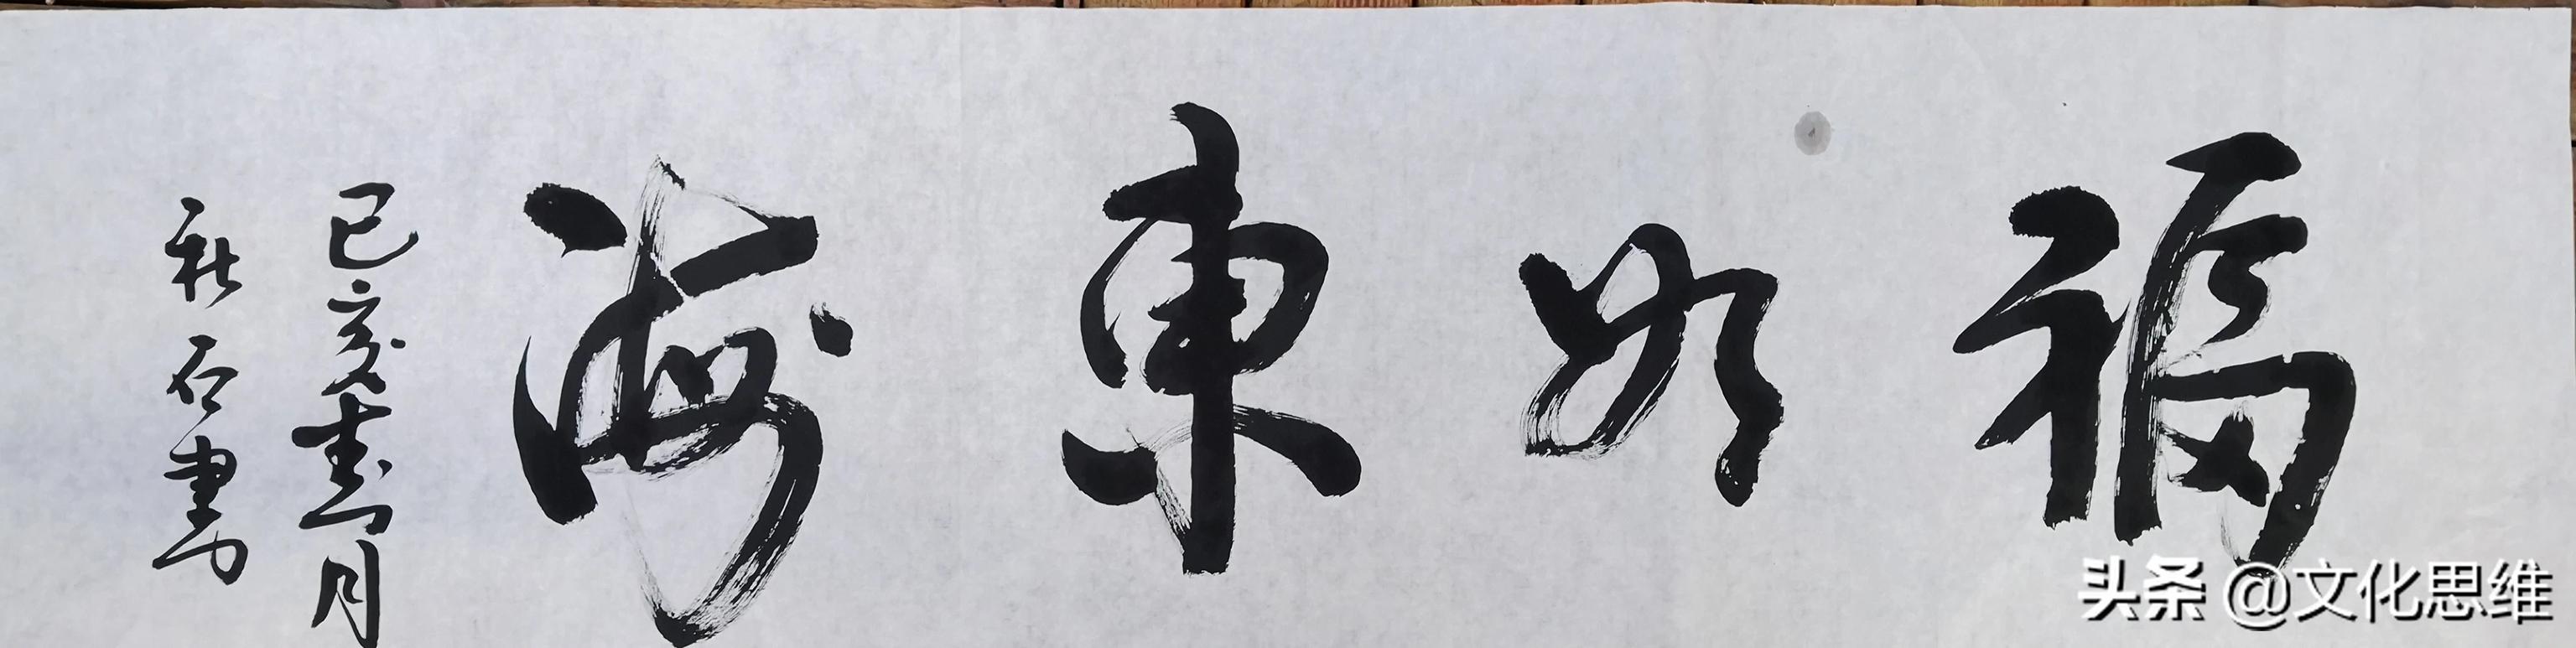 福如東海
己亥春月
秋石書
头条 @文化思维